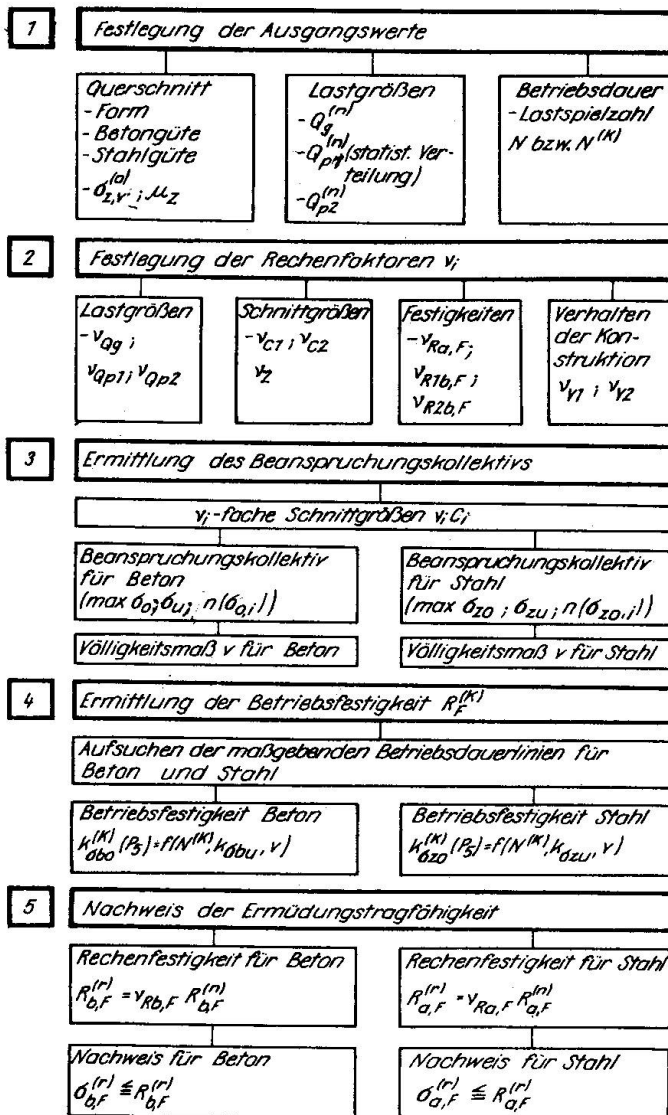 1 Festlegung der Ausgangswerte
Querschnitt
- Form
- Betongüte
- Stahlgüte
- σ_{z,v}^{(o)} ; μ_z
Lastgrößen
- Q_g^{(n)}
- Q_{p1}^{(n)} (statist. Ver-
teilung)
- Q_{p2}^{(n)}
Betriebsdauer
- Lastspielzahl
N bzw. N^{(K)}
2 Festlegung der Rechenfaktoren ν_i
Lastgrößen
- ν_{Qg} ;
ν_{Qp1} ; ν_{Qp2}
Schnittgrößen
- ν_{C1} ; ν_{C2}
ν_z
Festigkeiten
- ν_{Ra,F} ;
ν_{R1b,F} ;
ν_{R2b,F}
Verhalten
der Kon-
struktion
ν_{γ1} ; ν_{γ2}
3 Ermittlung des Beanspruchungskollektivs
ν_i-fache Schnittgrößen ν_i C_i
Beanspruchungskollektiv
für Beton
(max σ_o ; σ_u ; n(σ_{o,i}))
Beanspruchungskollektiv
für Stahl
(max σ_{zo} ; σ_{zu} ; n(σ_{zo,i}))
Völligkeitsmaß v für Beton
Völligkeitsmaß v für Stahl
4 Ermittlung der Betriebsfestigkeit R_F^{(K)}
Aufsuchen der maßgebenden Betriebsdauerlinien für
Beton und Stahl
Betriebsfestigkeit Beton
k_{σbo}^{(K)} (P_5) = f(N^{(K)}, k_{σbu}, v)
Betriebsfestigkeit Stahl
k_{σzo}^{(K)} (P_5) = f(N^{(K)}, k_{σzu}, v)
5 Nachweis der Ermüdungstragfähigkeit
Rechenfestigkeit für Beton
R_{b,F}^{(r)} = ν_{Rb,F} R_{b,F}^{(n)}
Rechenfestigkeit für Stahl
R_{a,F}^{(r)} = ν_{Ra,F} R_{a,F}^{(n)}
Nachweis für Beton
σ_{b,F}^{(r)} ≦ R_{b,F}^{(r)}
Nachweis für Stahl
σ_{a,F}^{(r)} ≦ R_{a,F}^{(r)}